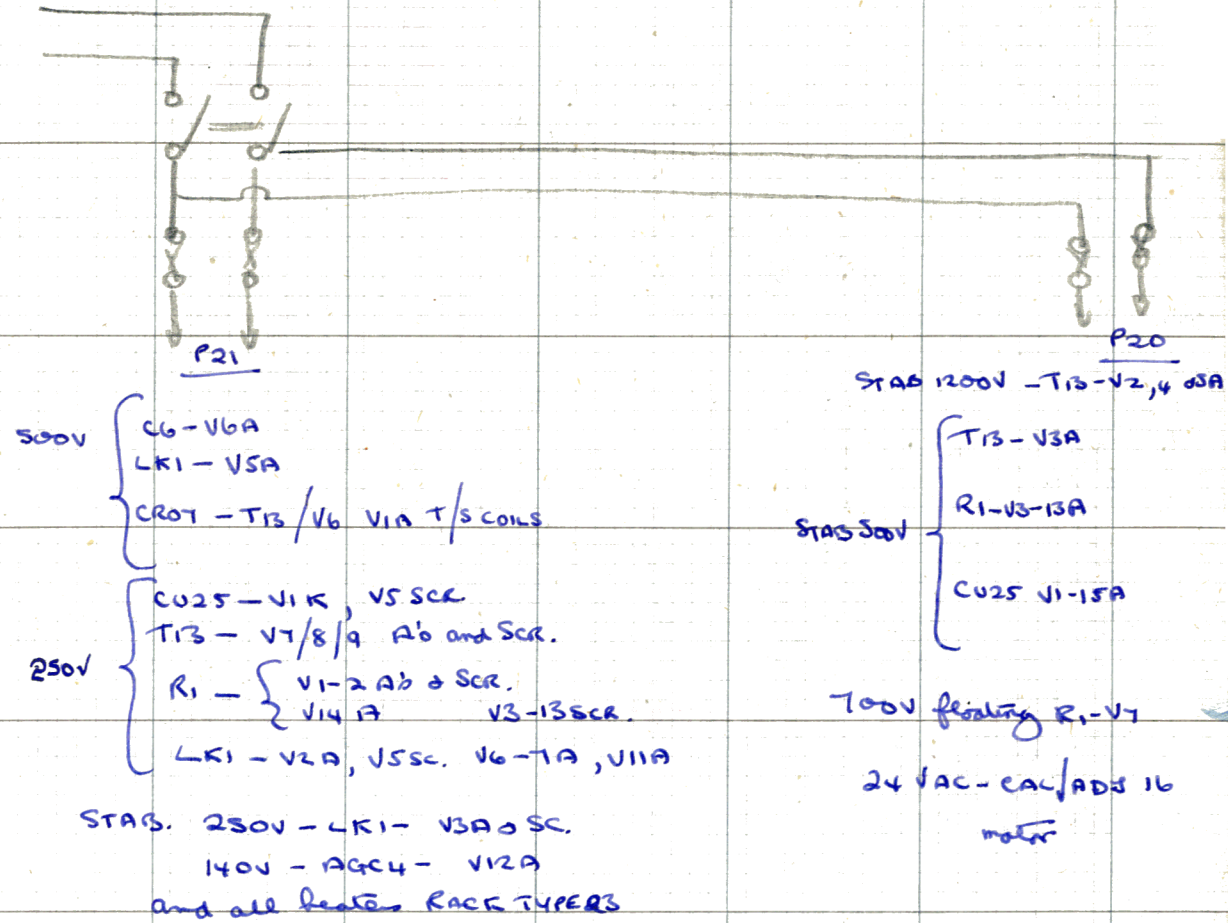 P21
500V
C6 - V6A
LK1 - V5A
CR07 - T13/V6 V1A T/S COILS
250V
CU25 - V1K, V5 SCR
T13 - V7/8/9 A's and SCR.
R1 - V1-2 A's & SCR.
V14 A V3-13 SCR.
LK1 - V2A, V5SC. V6-7A, V11A
STAB. 250V - LK1 - V3A & SC.
140V - AGC4 - V12A
and all heaters RACK TYPE R3
P20
STAB 1200V - T13 - V2,4 &5A
STAB 500V
T13 - V3A
R1 - V3-13A
CU25 V1-15A
700V floating R1-V7
24 VAC - CAL/ADJ 16
motor